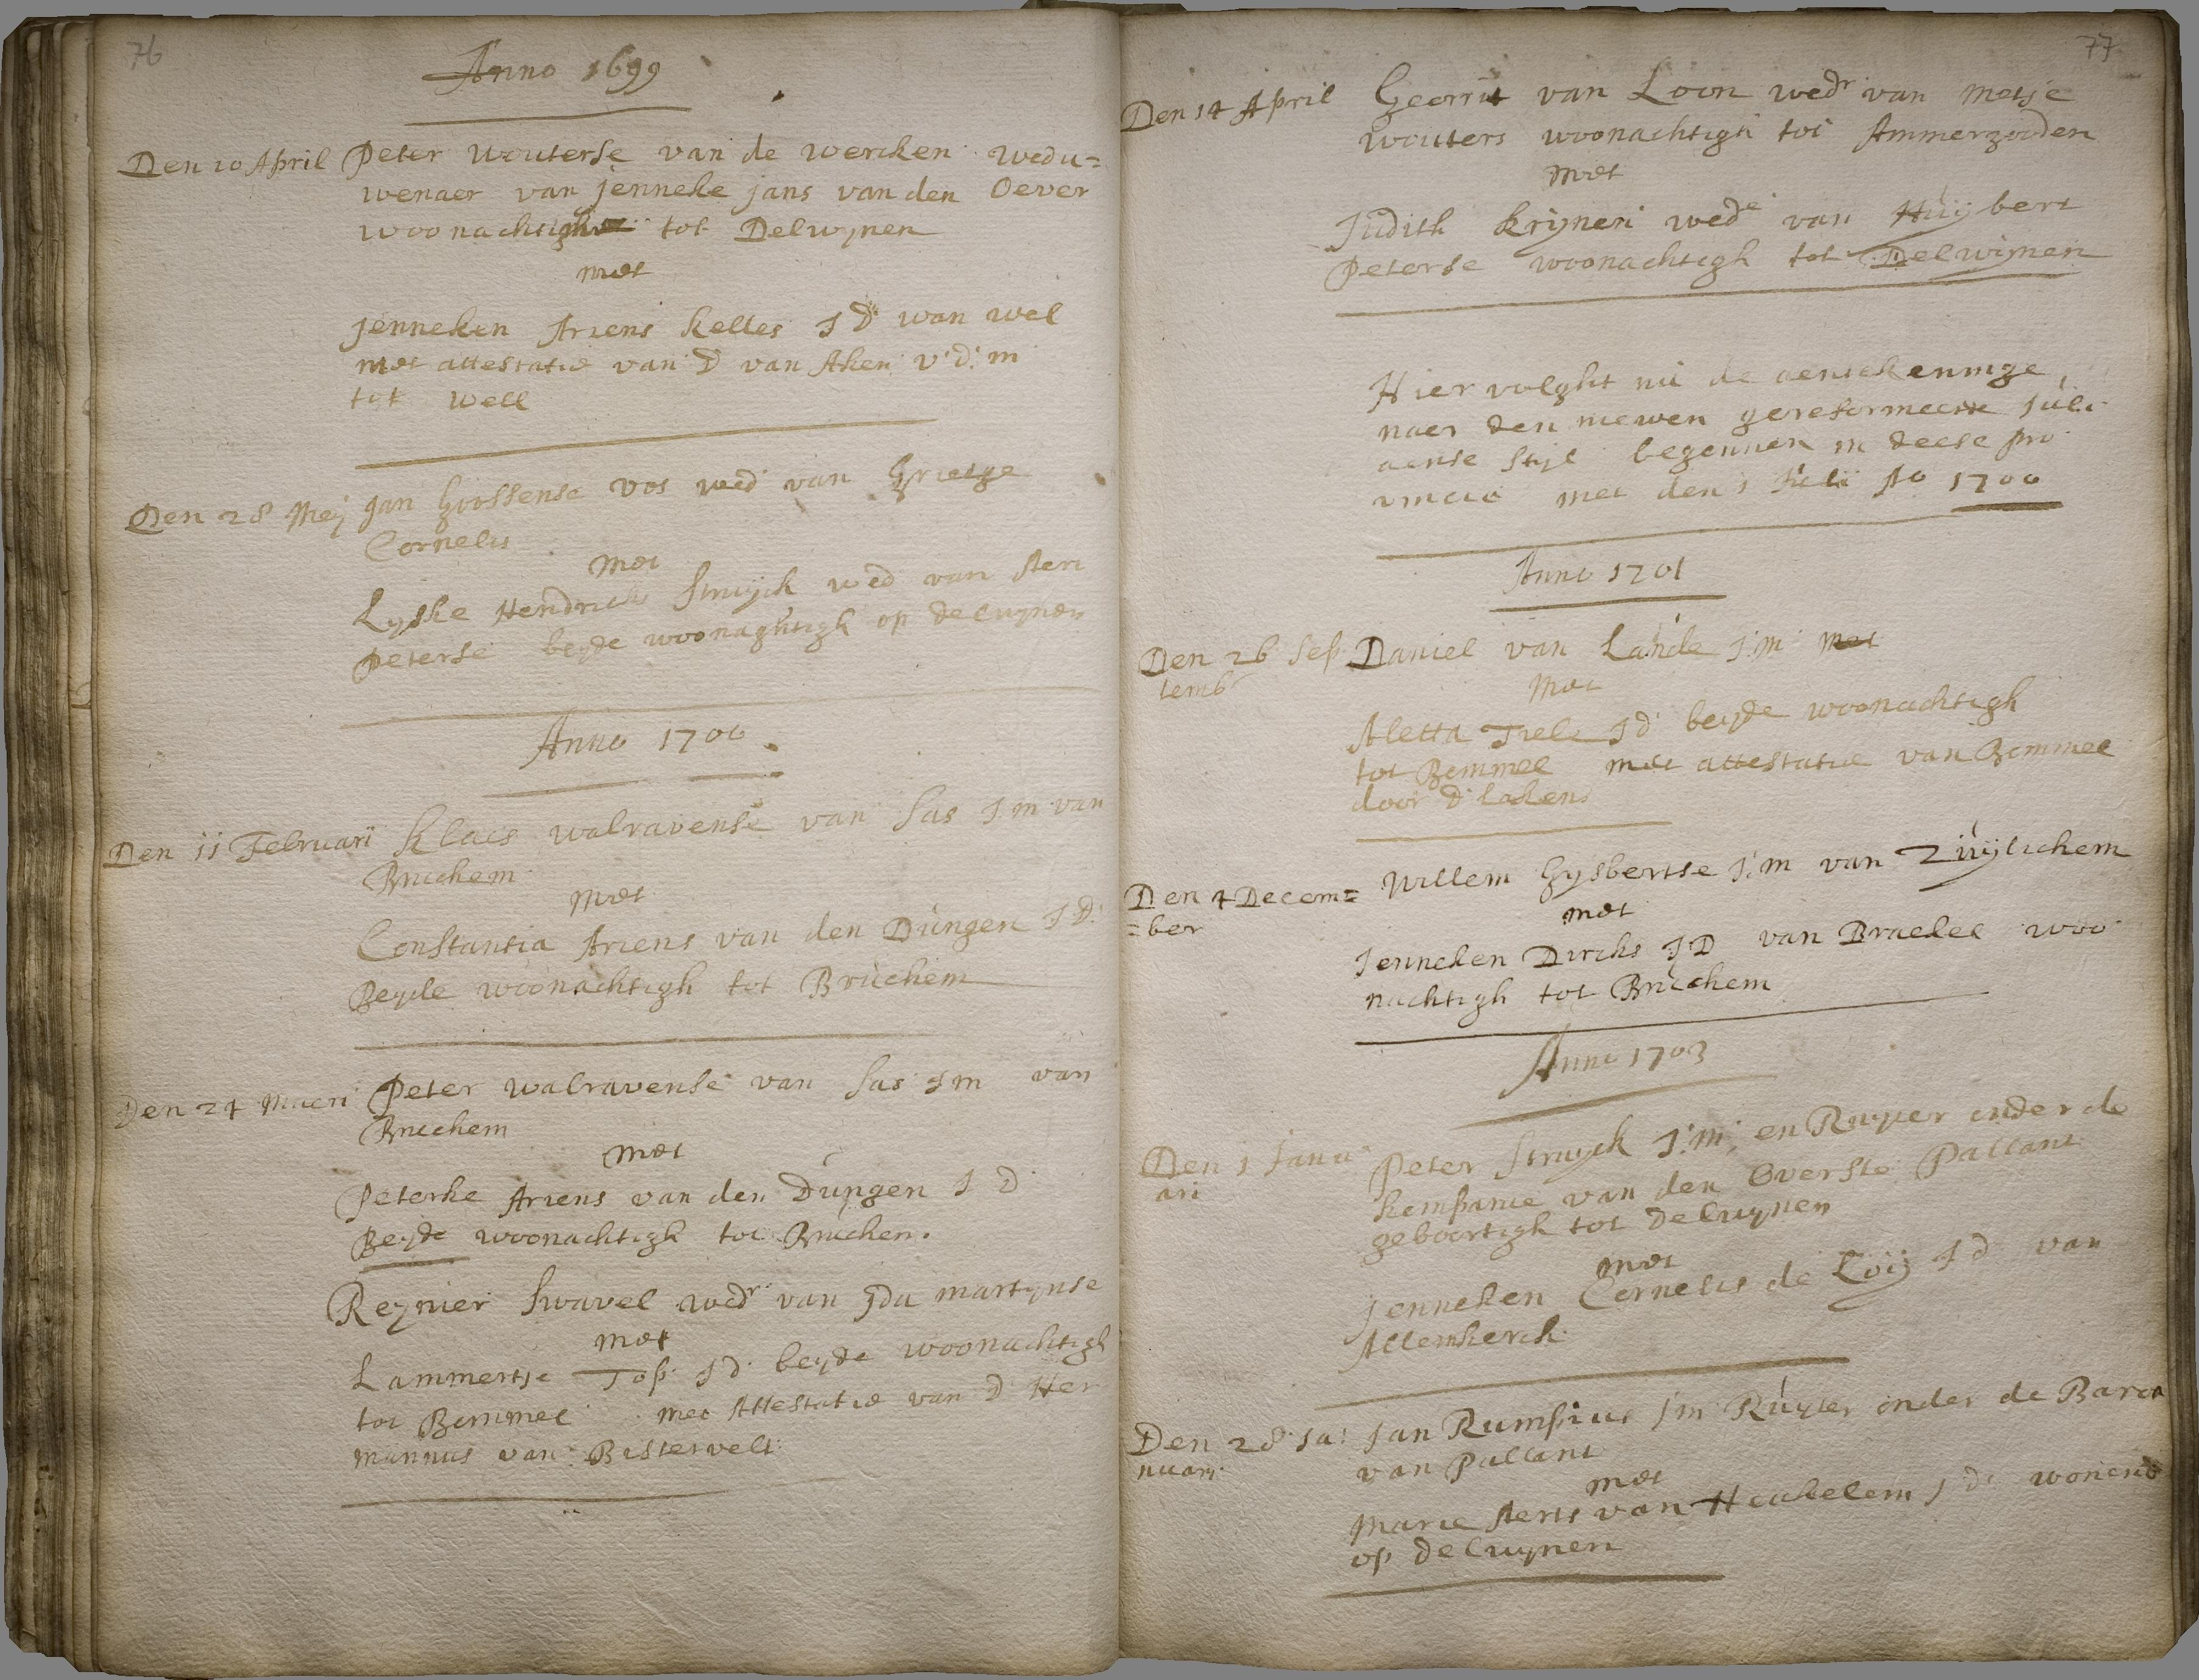 76
Anno 1699
Den 10 April Peter Wouterse van de wercken wedu=
wenaer van jenneke jans van den Oever
woonachtigh tot Delwynen
met
jenneken Ariens Kelles J D van wel
met attestatie van D van Aken v. d. m
tot Well
Den 28 Meij Jan Goossense Vos wed van Grietge
Cornelis
Met
Lyske Hendricks Struyck wed van Aert
Peterse beyde woonaghtigh op delwynen
Anno 1700
Den 11 Februarii Klaes walravense van Sas J m van
Bruchem
Met
Constantia Ariens van den Dungen J D.
Beyde woonachtigh tot Bruchem
Den 24 Maert Peter walravense van Sas J m van
Bruchem
Met
Peterke Ariens van den Dungen J D
Beyde woonachtigh tot Bruchem.
Reynier Swavel wedr van Ida martynse
Met
Lammertje Top J d beyde woonachtigh
tot Bommel met Attestatie van D Her
mannus van Bistervelt
77
Den 14 April Geerrit van Loon wedr van Metje
Wouters woonachtigh tot Ammerzoden
met
Judith Krijnen wede van Huijbert
Peterse woonachtigh tot Delwijnen
Hier volght nu de aenteekeninge
naer den niewen gereformeerde Juli
aense Stijl begonnen in deese pro
vincie met den 1 Julii Ao 1700
Anno 1701
Den 26 Sep Daniel van Lande J. m. met
temb
Met
Aletta Tiele J d beyde woonachtigh
tot Bommel met attestatie van Bommel
door D Lakens
Den 4 Decem= Willem Gysbertse J. m van Zuijlichem
=ber
met
Jenneken Dircks J D van Brakel woo
nachtigh tot Bruchem
Anno 1703
Den 1 Janu Peter Struyck J. m. en Ruyter onder de
ari
kompanie van den Overste Pallant
geboortigh tot delwynen
met
Jenneken Cornelis de Loij J d van
Allemkerck
Den 28 Ja: Jan Rumpius J m Ruyter onder de Baron
nuari
van Pallant
met
Marie Aerts van Heukelem J d. wonend
op delwynen